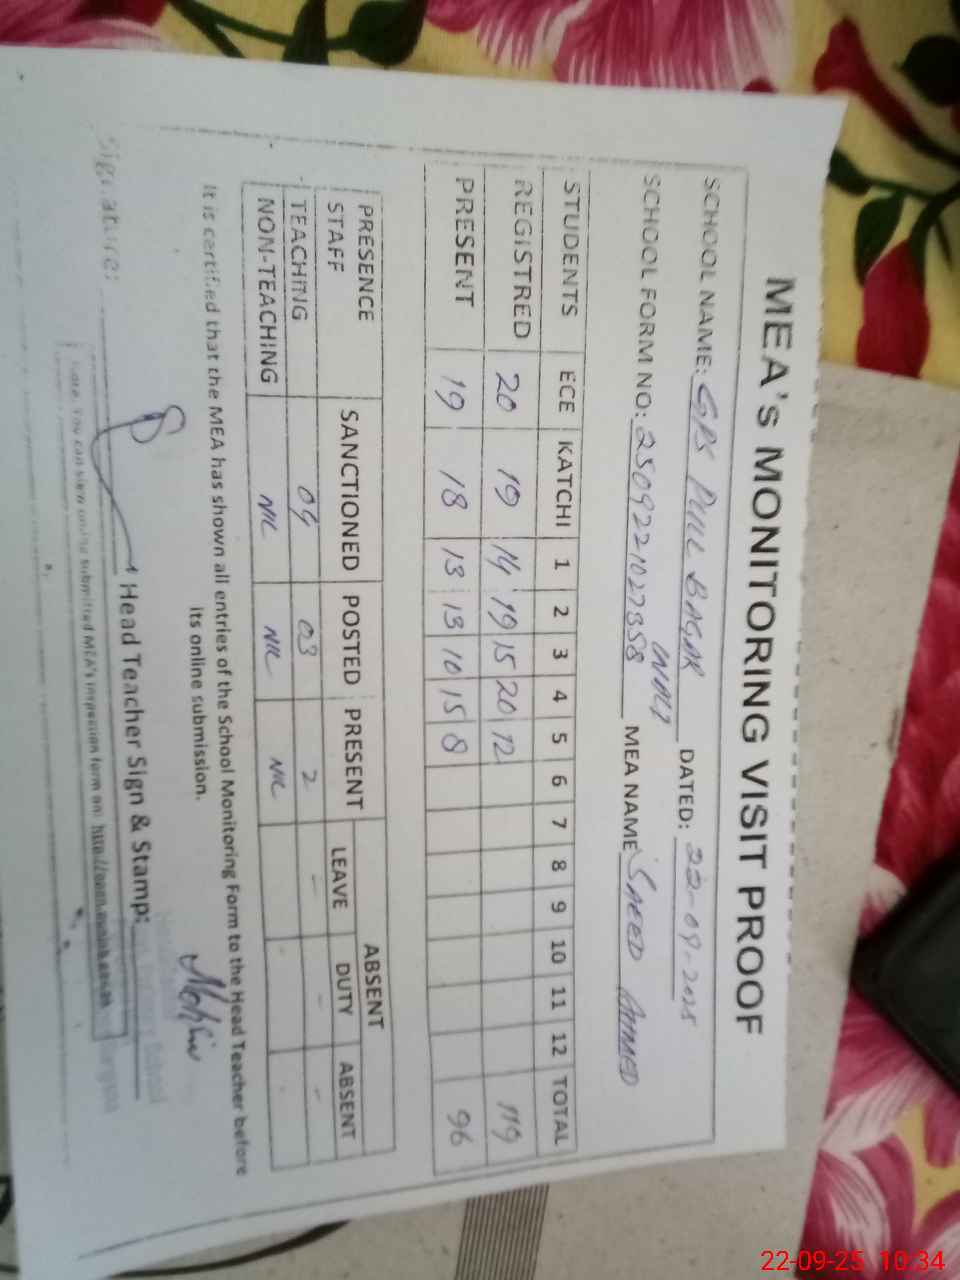 MEA's MONITORING VISIT PROOF
SCHOOL NAME: GPS PULL BAGAR WALI DATED: 22-09-2025
SCHOOL FORM NO: 2509221027358 MEA NAME SAEED AHMED
STUDENTS ECE KATCHI 1 2 3 4 5 6 7 8 9 10 11 12 TOTAL
REGISTRED 20 19 14 19 15 20 12 119
PRESENT 19 18 13 13 10 15 8 96
PRESENCE STAFF SANCTIONED POSTED PRESENT ABSENT
LEAVE DUTY ABSENT
TEACHING 04 03 2 - - -
NON-TEACHING NIL NIL NIL
It is certified that the MEA has shown all entries of the School Monitoring Form to the Head Teacher before
its online submission.
Signature: Head Teacher Sign & Stamp:
Note: You can view online submitted MEA's inspection form on:
22-09-25 10:34